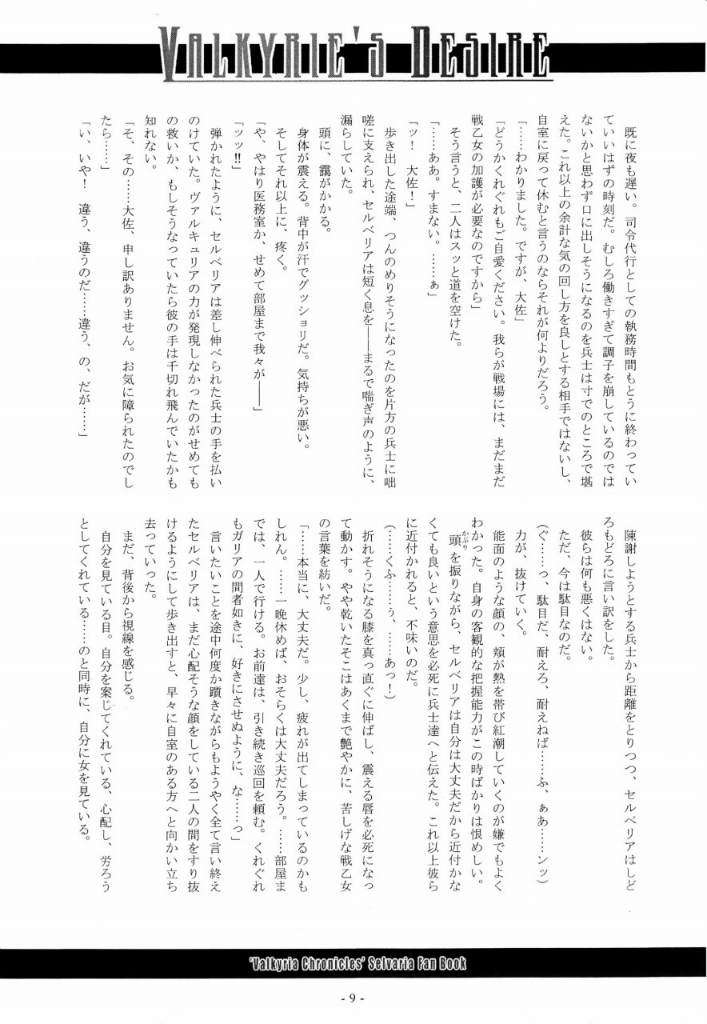 VALKYRIE'S DESIRE
既に夜も遅い。司令代行としての執務時間もとうに終わってい
ていいはずの時刻だ。むしろ働きすぎて調子を崩しているのでは
ないかと思わず口に出しそうになるのを兵士は寸でのところで堪
えた。これ以上の余計な気の回し方を良しとする相手ではないし、
自室に戻って休むと言うのならそれが何よりだろう。
「……わかりました。ですが、大佐」
「どうかくれぐれもご自愛ください。我らが戦場には、まだまだ
戦乙女の加護が必要なのですから」
そう言うと、二人はスッと道を空けた。
「……ああ。すまない。……ぁ」
「ッ！　大佐！」
歩き出した途端、つんのめりそうになったのを片方の兵士に咄
嗟に支えられ、セルベリアは短く息を――まるで喘ぎ声のように、
漏らしていた。
頭に、靄がかかる。
身体が震える。背中が汗でグッショリだ。気持ちが悪い。
そしてそれ以上に、疼く。
「や、やはり医務室か、せめて部屋まで我々が――」
「ッッ!!」
弾かれたように、セルベリアは差し伸べられた兵士の手を払い
のけていた。ヴァルキュリアの力が発現しなかったのがせめても
の救いか、もしそうなっていたら彼の手は千切れ飛んでいたかも
知れない。
「そ、その……大佐、申し訳ありません。お気に障られたのでし
たら……」
「い、いや！　違う、違うのだ……違う、の、だが……」
陳謝しようとする兵士から距離をとりつつ、セルベリアはしど
ろもどろに言い訳をした。
彼らは何も悪くはない。
ただ、今は駄目なのだ。
（ぐ……っ、駄目だ、耐えろ、耐えねば……ふ、ぁあ……ンッ）
力が、抜けていく。
能面のような顔の、頬が熱を帯び紅潮していくのが嫌でもよく
わかった。自身の客観的な把握能力がこの時ばかりは恨めしい。
頭を振りながら、セルベリアは自分は大丈夫だから近付かな
くても良いという意思を必死に兵士達へと伝えた。これ以上彼ら
に近付かれると、不味いのだ。
（……くふ……ぅ、……あっ！）
折れそうになる膝を真っ直ぐに伸ばし、震える唇を必死になっ
て動かす。やや乾いたそこはあくまで艶やかに、苦しげな戦乙女
の言葉を紡いだ。
「……本当に、大丈夫だ。少し、疲れが出てしまっているのかも
しれん。……一晩休めば、おそらくは大丈夫だろう。……部屋ま
では、一人で行ける。お前達は、引き続き巡回を頼む。くれぐれ
もガリアの間者如きに、好きにさせぬように、な……っ」
言いたいことを途中何度か躓きながらもようやく全て言い終え
たセルベリアは、まだ心配そうな顔をしている二人の間をすり抜
けるようにして歩き出すと、早々に自室のある方へと向かい立ち
去っていった。
まだ、背後から視線を感じる。
自分を見ている目。自分を案じてくれている、心配し、労ろう
としてくれている……のと同時に、自分に女を見ている。
'Valkyria Chronicles' Selvaria Fan Book
- 9 -